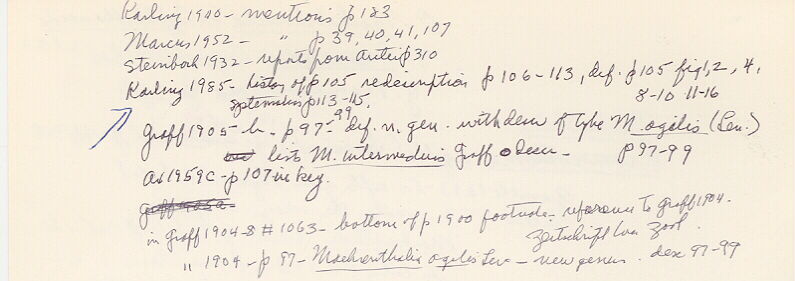 Karling 1940 - mentions p 183
Marcus 1952 - " p 39, 40, 41, 107
Steinbock 1932 - reports from p 310
Karling 1985 - history of p 105 redescription p 106-113, def. p 105 fig 1, 2, 4,
8-10 11-16
systematics p 113-115.
Graff 1905-b - p 97-99 def. n. gen. with descr of type M. agilis (Lev.)
lists M. intermedius Graff o descr - p 97-99
Ax 1959c - p 107 in key
in Graff 1904-8 # 1063 - bottom of p 1900 footnote - reference to Graff 1904.
Zeitschrift wa Zool.
" 1904 - p 97 - agilis Lev - new genus. des 97-99